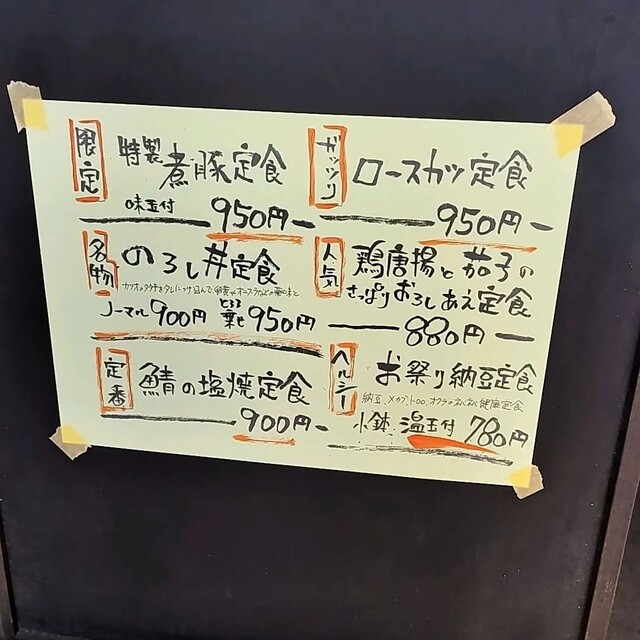 限定
特製 煮豚定食
味玉付 950円
ガッツリ
ロースカツ定食
950円
名物
のろし丼定食
カツオのタタキをタレにつけ込んで
ノーマル900円 とろろ乗せ950円
人気
鶏唐揚と茄子の
さっぱりおろしあえ定食
880円
定番
鯖の塩焼定食
900円
ヘルシー
お祭り納豆定食
納豆、メカブ、トロロ、オクラのネバネバ健康定食
小鉢、温玉付 780円